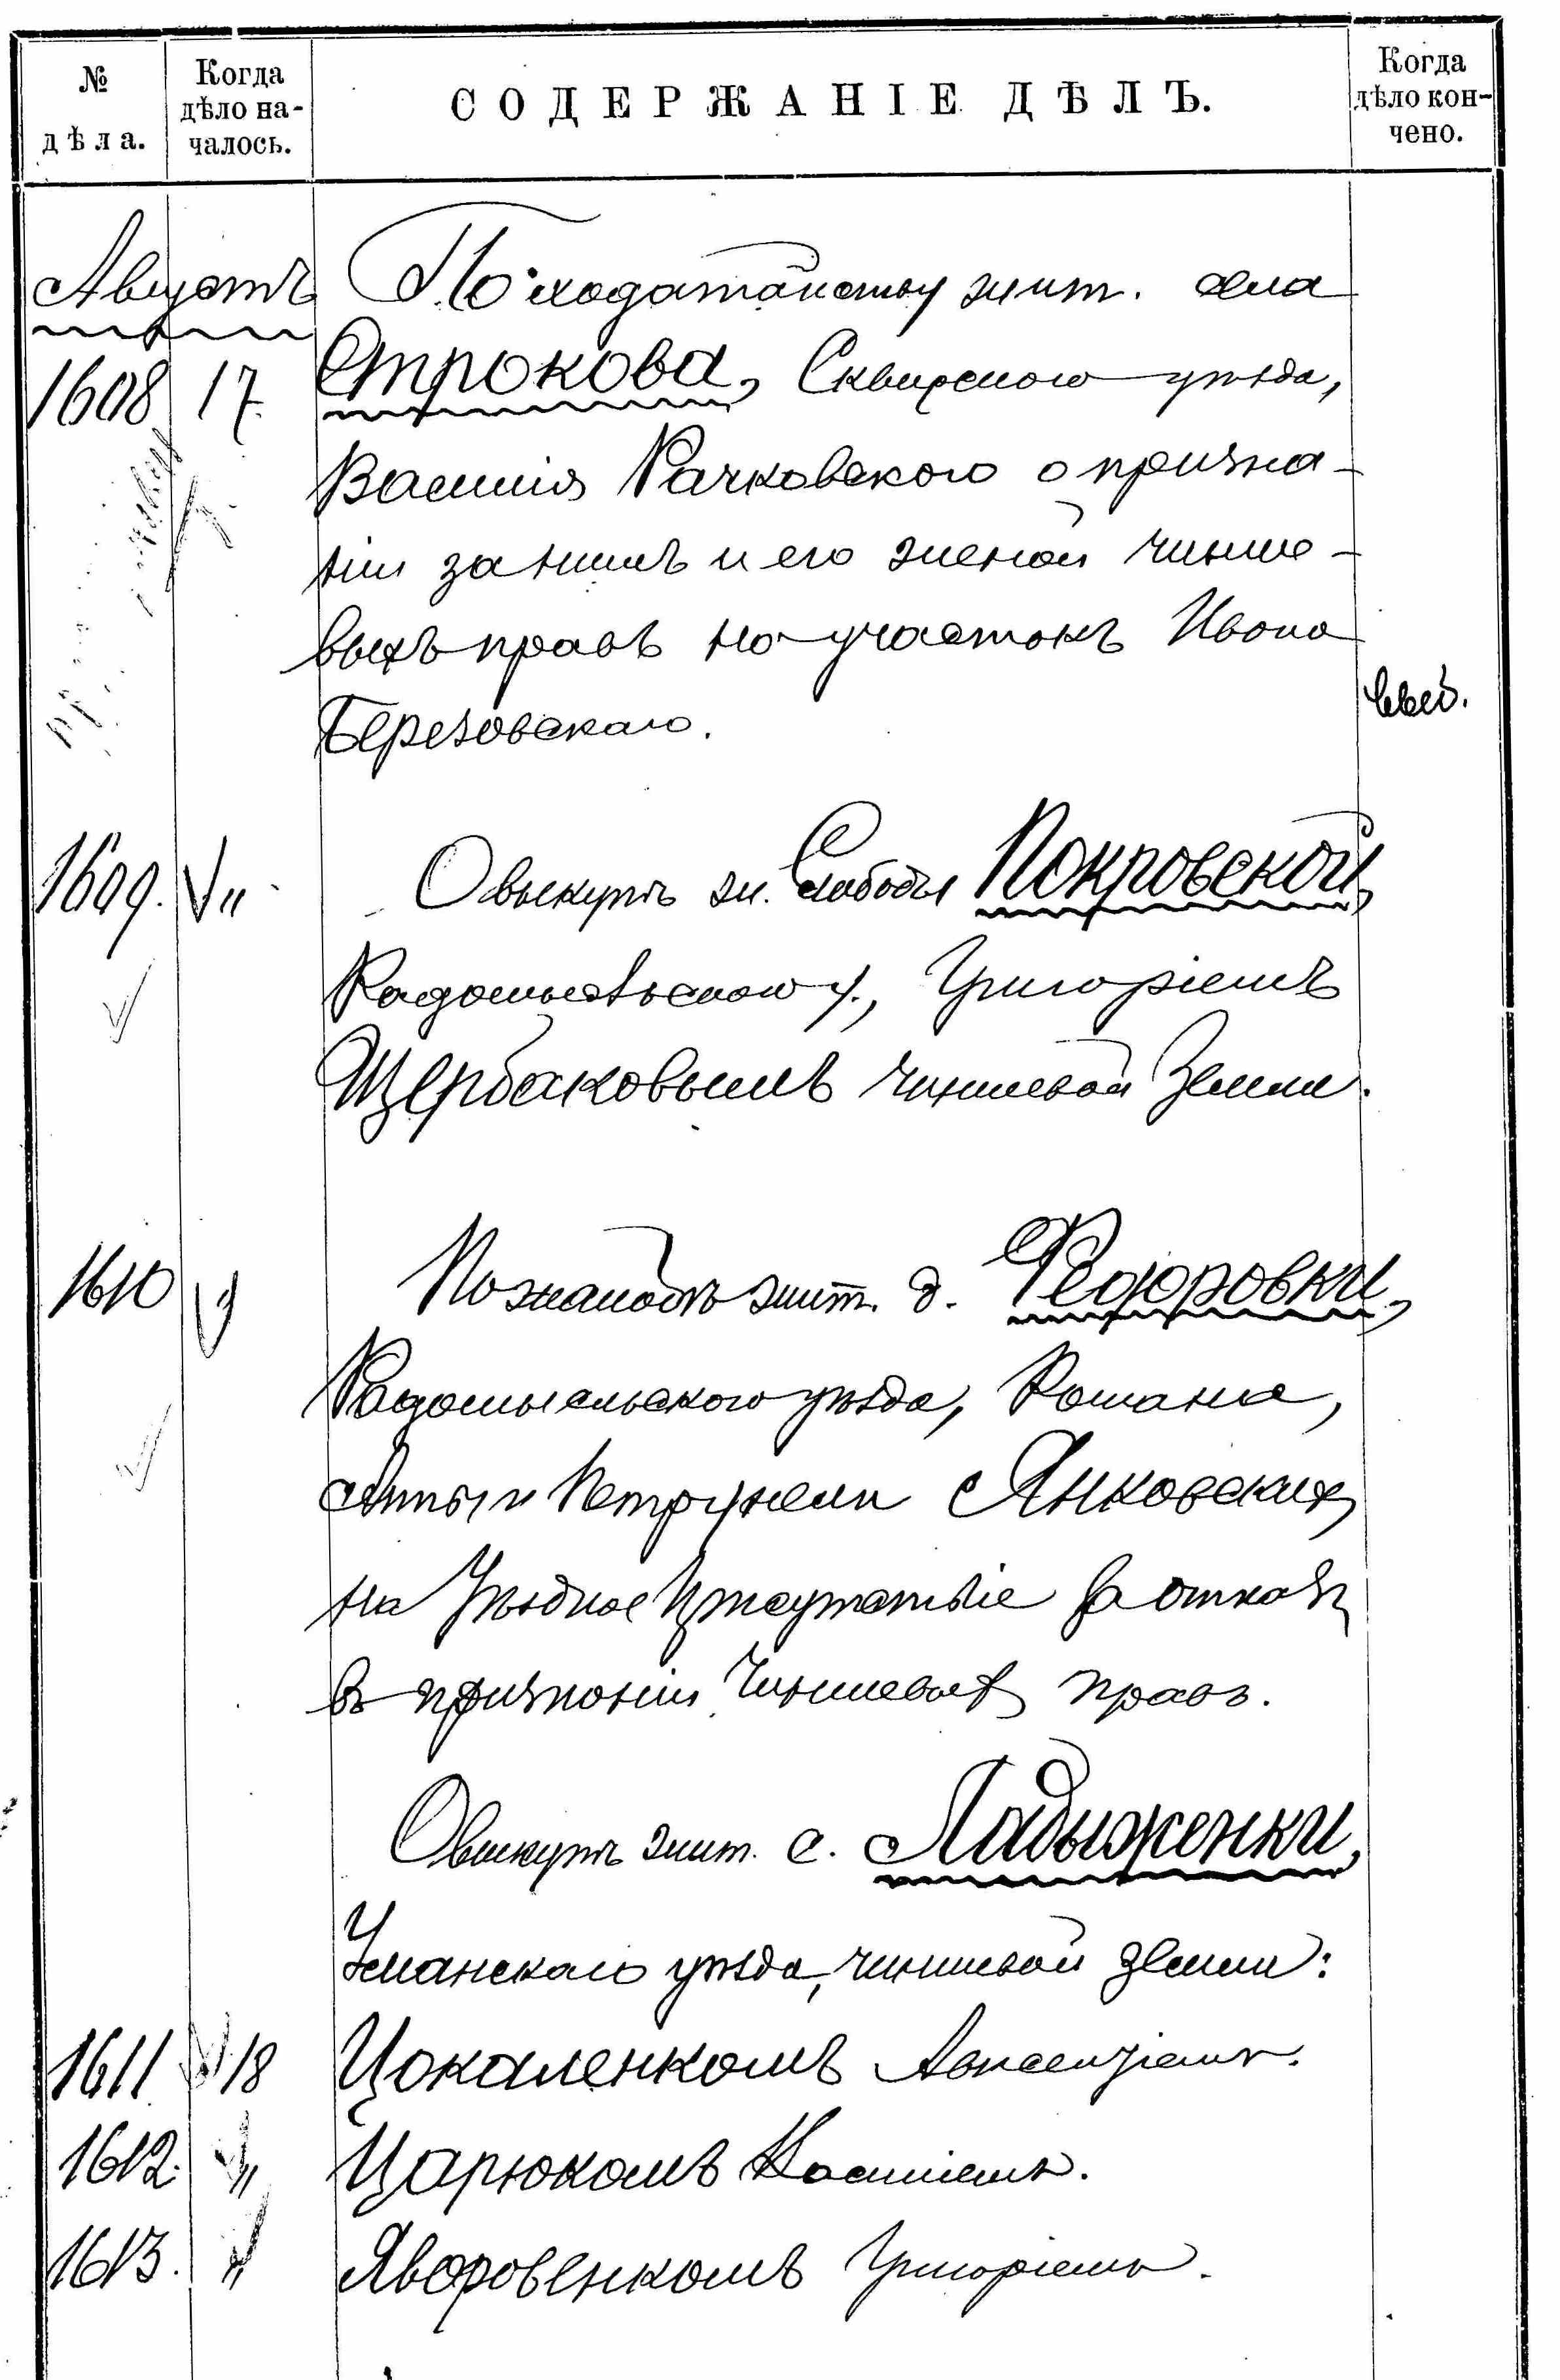 № дѣла.
Когда дѣло на-
чалось.
СОДЕРЖАНІЕ ДѢЛЪ.
Когда дѣло кон-
чено.
Августъ
По ходатайству жит. села
1608 17. Строкова, Сквирскаго уѣзда,
Василія Рачковскаго о призна-
ніи за нимъ и его женой чинше-
выхъ правъ на участокъ Ивана
Березовскаго.
1609. " О выкупѣ ж. Слободы Покровской,
Радомысльскаго у., Григоріемъ
Щербаковымъ чиншевой земли.
1610 " По жалобѣ жит. д. Федоровки,
Радомысльскаго уѣзда, Романа,
Анны и Петрунели Янковских
на Уѣздное Присутствіе за отказъ
въ признаніи чиншевых правъ.
О выкупѣ жит. с. Ладыженки,
Уманскаго уѣзда, чиншевой земли:
1611 18 Цокаленкомъ Авксентіемъ.
1612. " Царюкомъ Касьяномъ.
1613. " Яворовенкомъ Григоріемъ.